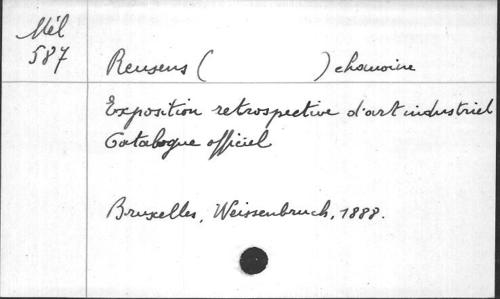 Mél
587
Reusens ( ) chanoine
Exposition retrospective d'art industriel
Catalogue officiel
Bruxelles, Weissenbruch, 1888.